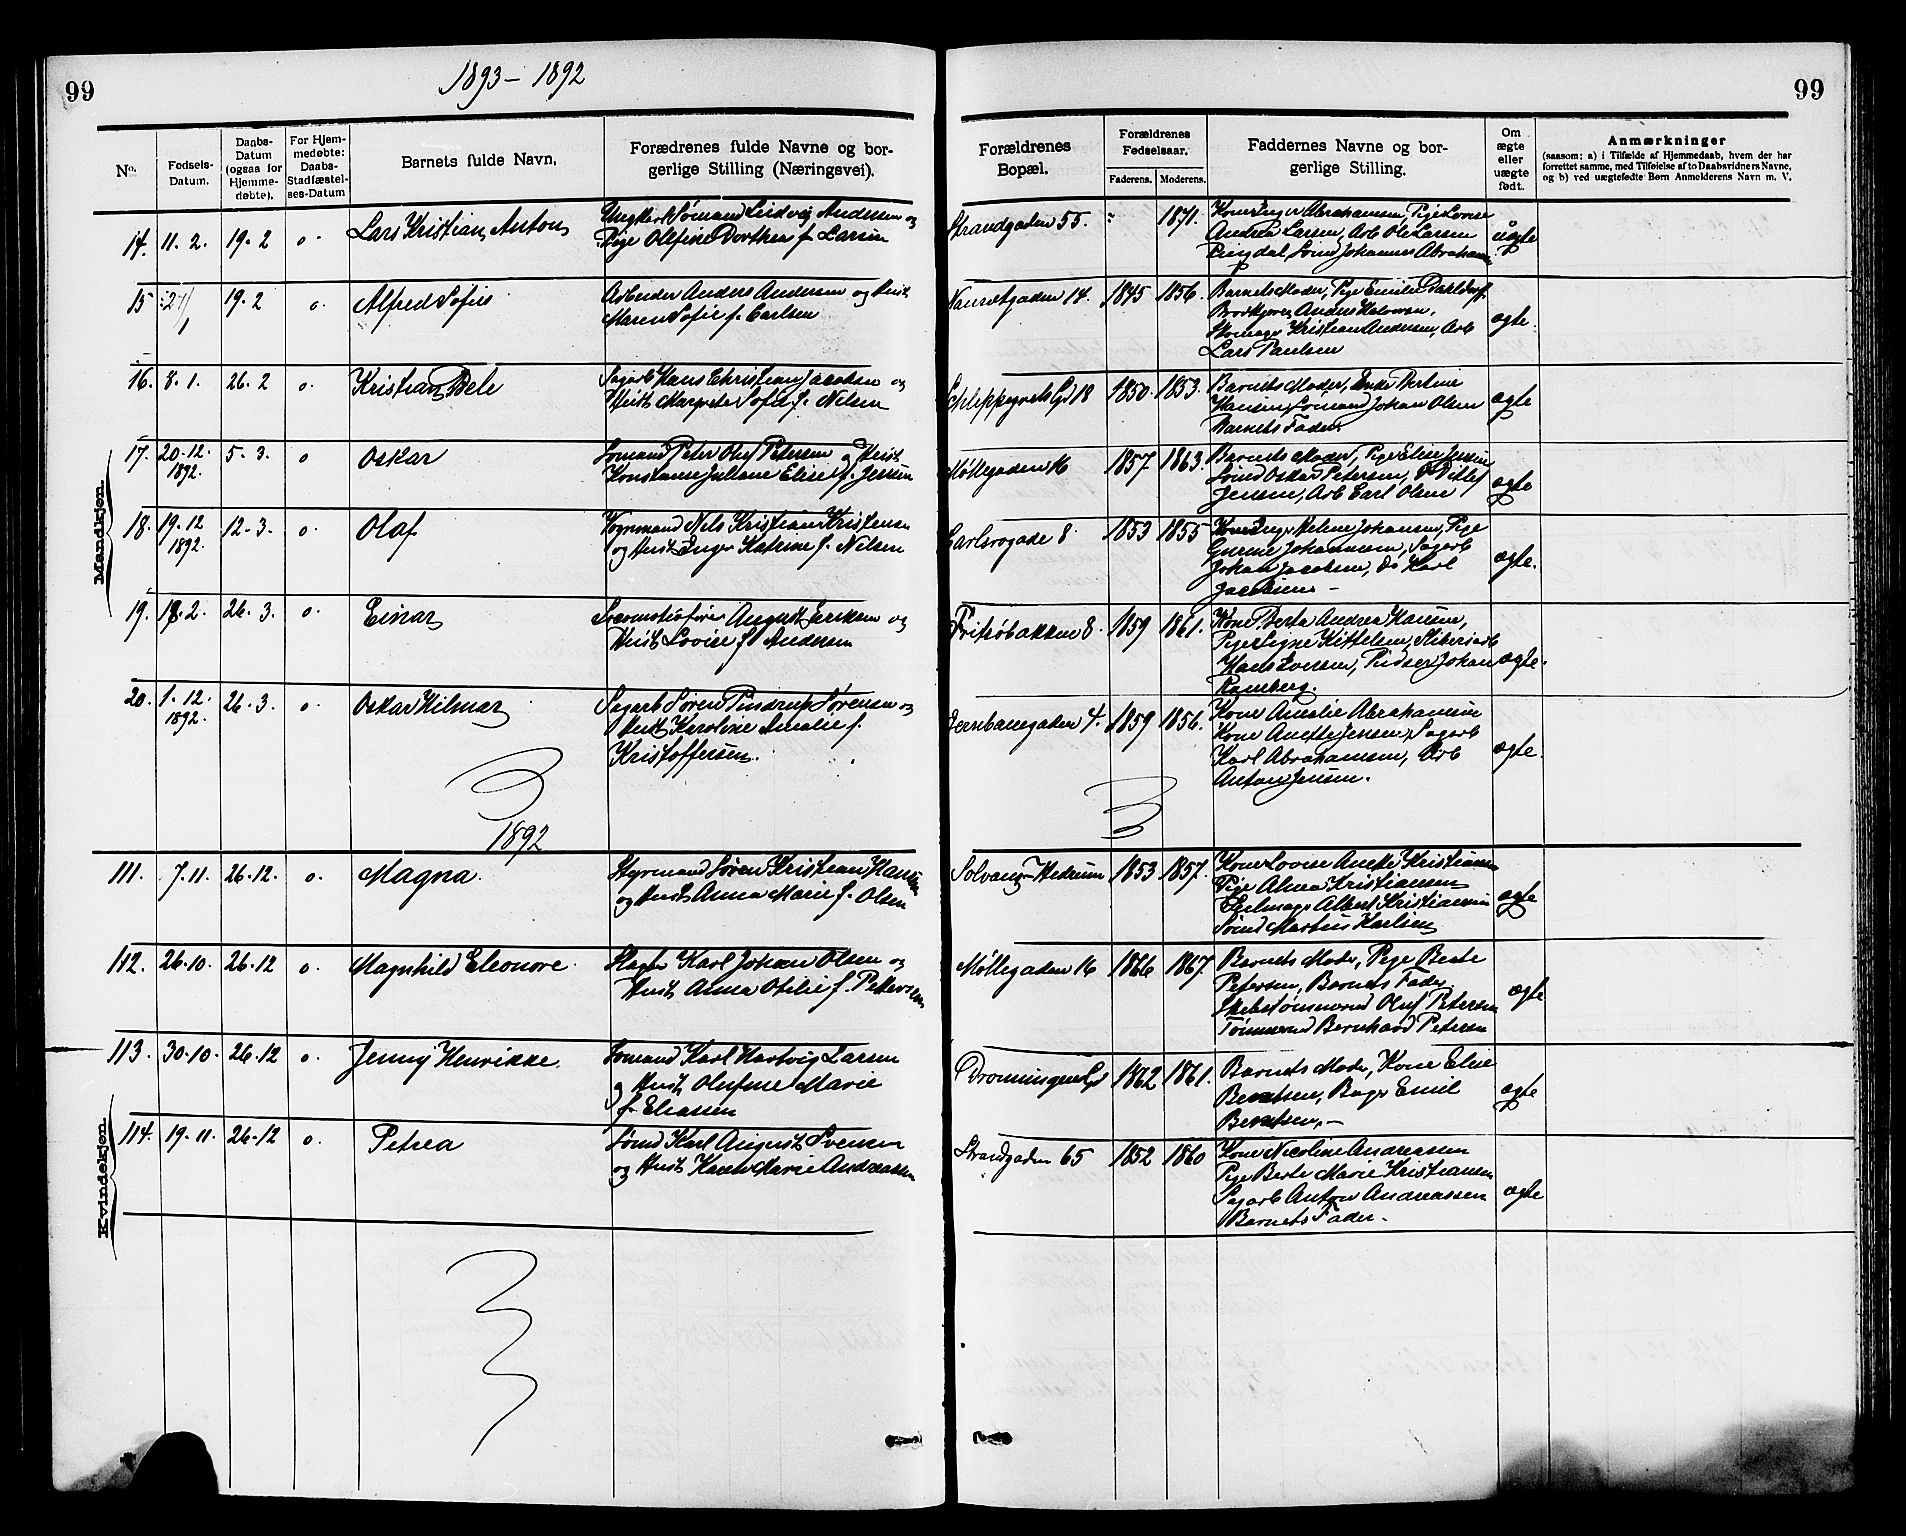 99
1893 - 1892
99
No.
Fødsels-Datum.
Daabs-Datum (ogsaa for Hjemme-døbte).
For Hjem-medøbte: Daabs-Stadfæstel-ses-Datum
Barnets fulde Navn,
Forædrenes fulde Navne og bor-gerlige Stilling (Næringsvei).
Forældrenes Bopæl.
Forældrenes Fødselsaar.
Faderens. Moderens.
Faddernes Navne og bor-gerlige Stilling.
Om ægte eller uægte født.
Anmærkninger
(saasom: a) i Tilfælde af Hjemmedaab, hvem der har
forrettet samme, med Tilføielse af to Daabsvidners Navne,
og b) ved uægtefødte Børn Anmelderens Navn m. V.
Mandkjøn
14. 11.2. 19.2 o. Lars Kristian Anton
Ungkarl Sømand Ludvig Andersen og
Pige Olefine Dorthea f. Larsen
Strandgaden 55. " 1871.
Kone Inger Abrahamsen, Pige Lovise
Andrea Larsen, Arb Ole Larsen
Ringdal, Sømd Johannes Abrahams
uægte
15 27/1 19.2 o. Alfred Sofus
Arbeider Anders Andersen og Hust
Maren Sofie f. Carlsen
Nansetgaden 14. 1845 1856.
Barnets Moder, Pige Emilie Dahldorf.
Brødkjører Anders Halvorsen,
Skomager Kristian Andersen, Arb
Lars Paulsen
ægte.
16. 8.1. 26.2 o. Kristian Bele
Sagarb Hans Christian Jacobsen og
Hust Margrete Sofie f. Nilsen
Schleppegrelsgd 18 1850. 1853.
Barnets Moder, Enke Bertine
Hansen, Sømand Johan Olsen
Barnets Fader.
ægte
17. 20.12. 1892. 5.3. o Oskar
Sømand Peter Oluf Petersen og Hust
Konstanse Juliane Elise f. Jensen
Møllegaden 16 1857 1863.
Barnets Moder, Pige Elise Jensen
Sømd Oskar Petersen, Ditlef
Jensen, Arb Carl Olsen
ægte
18. 19.12 1892. 12.3. o. Olaf
Vognmand Nils Kristian Kristensen
og Hust Inger Katrine f. Nilsen
Carlsrogade 8. 1853 1855
Kone Inger Helene Johansen, Pige
Gurine Johannesen, Sagarb
Johan Jacobsen, do Karl
Jacobsen -
ægte.
19. 18.2. 26.3. o. Einar
August Eriksen og
Hust Lovise f. Andersen
Fritzøbakken 8. 1859 1861.
Kone Berta Andrea Hansen,
Pige Signe Kittelsen, Sliberiarb
Hans Iversen, Pudser Johan
Ramberg.
ægte.
20. 1.12. 1892. 26.3. o. Oskar Hilmar
Sagarb Søren Pindrup Sørensen og
Hust Karoline Amalie f.
Kristoffersen.
Jernbanegaden 4. 1859 1856.
Kone Amalie Abrahamsen
Kone Anette Jensen, Sagarb
Karl Abrahamsen, Arb
Anton Jensen.
ægte.
1892
Kvindekjøn.
111. 7.11. 26.12. o. Magna
Styrmand Søren Kristian Hansen
og Hust Anna Marie f. Olsen
Solvang Hedrum 1853 1857.
Kone Lovise Anette Kristiansen
Pige Alma Kristiansen
Seilmager Albert Kristiansen
Sømd Martius Karlsen
ægte
112. 26.10. 26.12 o. Magnhild Eleonore.
Slagter Karl Johan Olsen og
Hust Anna Otilie f. Pettersen
Møllegaden 16 1866 1867.
Barnets Moder, Pige Berte
Petersen, Barnets Fader.
Skibstømmermd Oluf Petersen
Tømmermd Bernhard Petersen
ægte
113. 30.10. 26.12 o. Jenny Henrikke.
Sømand Karl Hartvig Larsen
og Hust Olufine Marie
f. Eliassen
Dronningensgd 1862 1861.
Barnets Moder, Kone Elise
Berntsen, Bager Emil
Berntsen. -
ægte
114. 19.11. 26.12 o. Petrea
Sømd Karl August Svensen
og Hust Karen Marie Andreassen
Strandgaden 65 1852 1860
Kone Nicoline Andreassen
Pige Berte Marie Kristiansen
Sagarb Anton Andreassen
Barnets Fader.
ægte